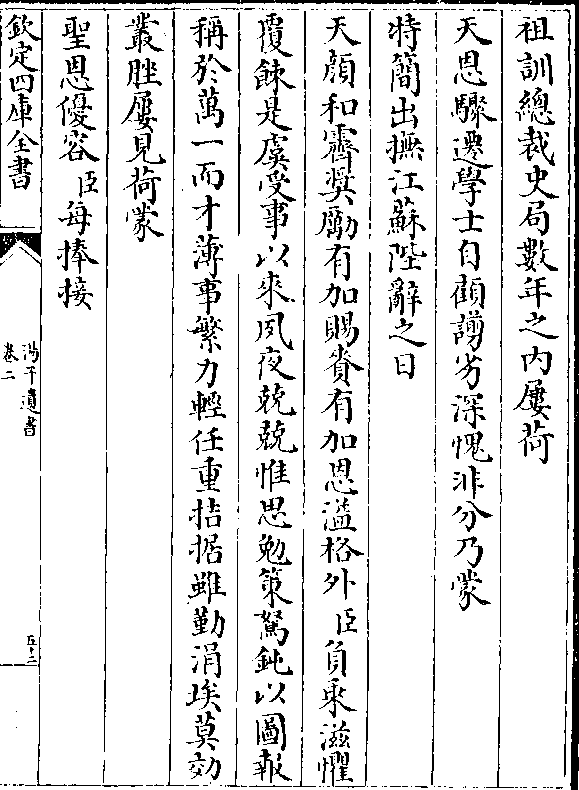 祖訓總裁史局數年之內屢荷
天恩驟遷學士自顧譾劣深愧非分乃蒙
特簡出撫江蘇陛辭之日
天顔和霽奬勵有加賜賚有加恩溢格外臣負乘滋懼
覆餗是虞受事以來夙夜兢兢惟思勉策駑鈍以圖報
稱於萬一而才薄事繁力輕任重拮据雖勤涓埃莫効
叢脞屢見荷蒙
聖恩優容臣每捧接
欽定四庫全書
湯子遺書
卷二
五十二